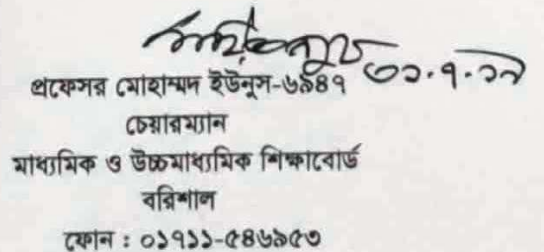 ৩১.৭.১৯
প্রফেসর মোহাম্মদ ইউনুস-৬৯৪৭
চেয়ারম্যান
মাধ্যমিক ও উচ্চমাধ্যমিক শিক্ষাবোর্ড
বরিশাল
ফোন : ০১৭১১-৫৪৬৯৫৩